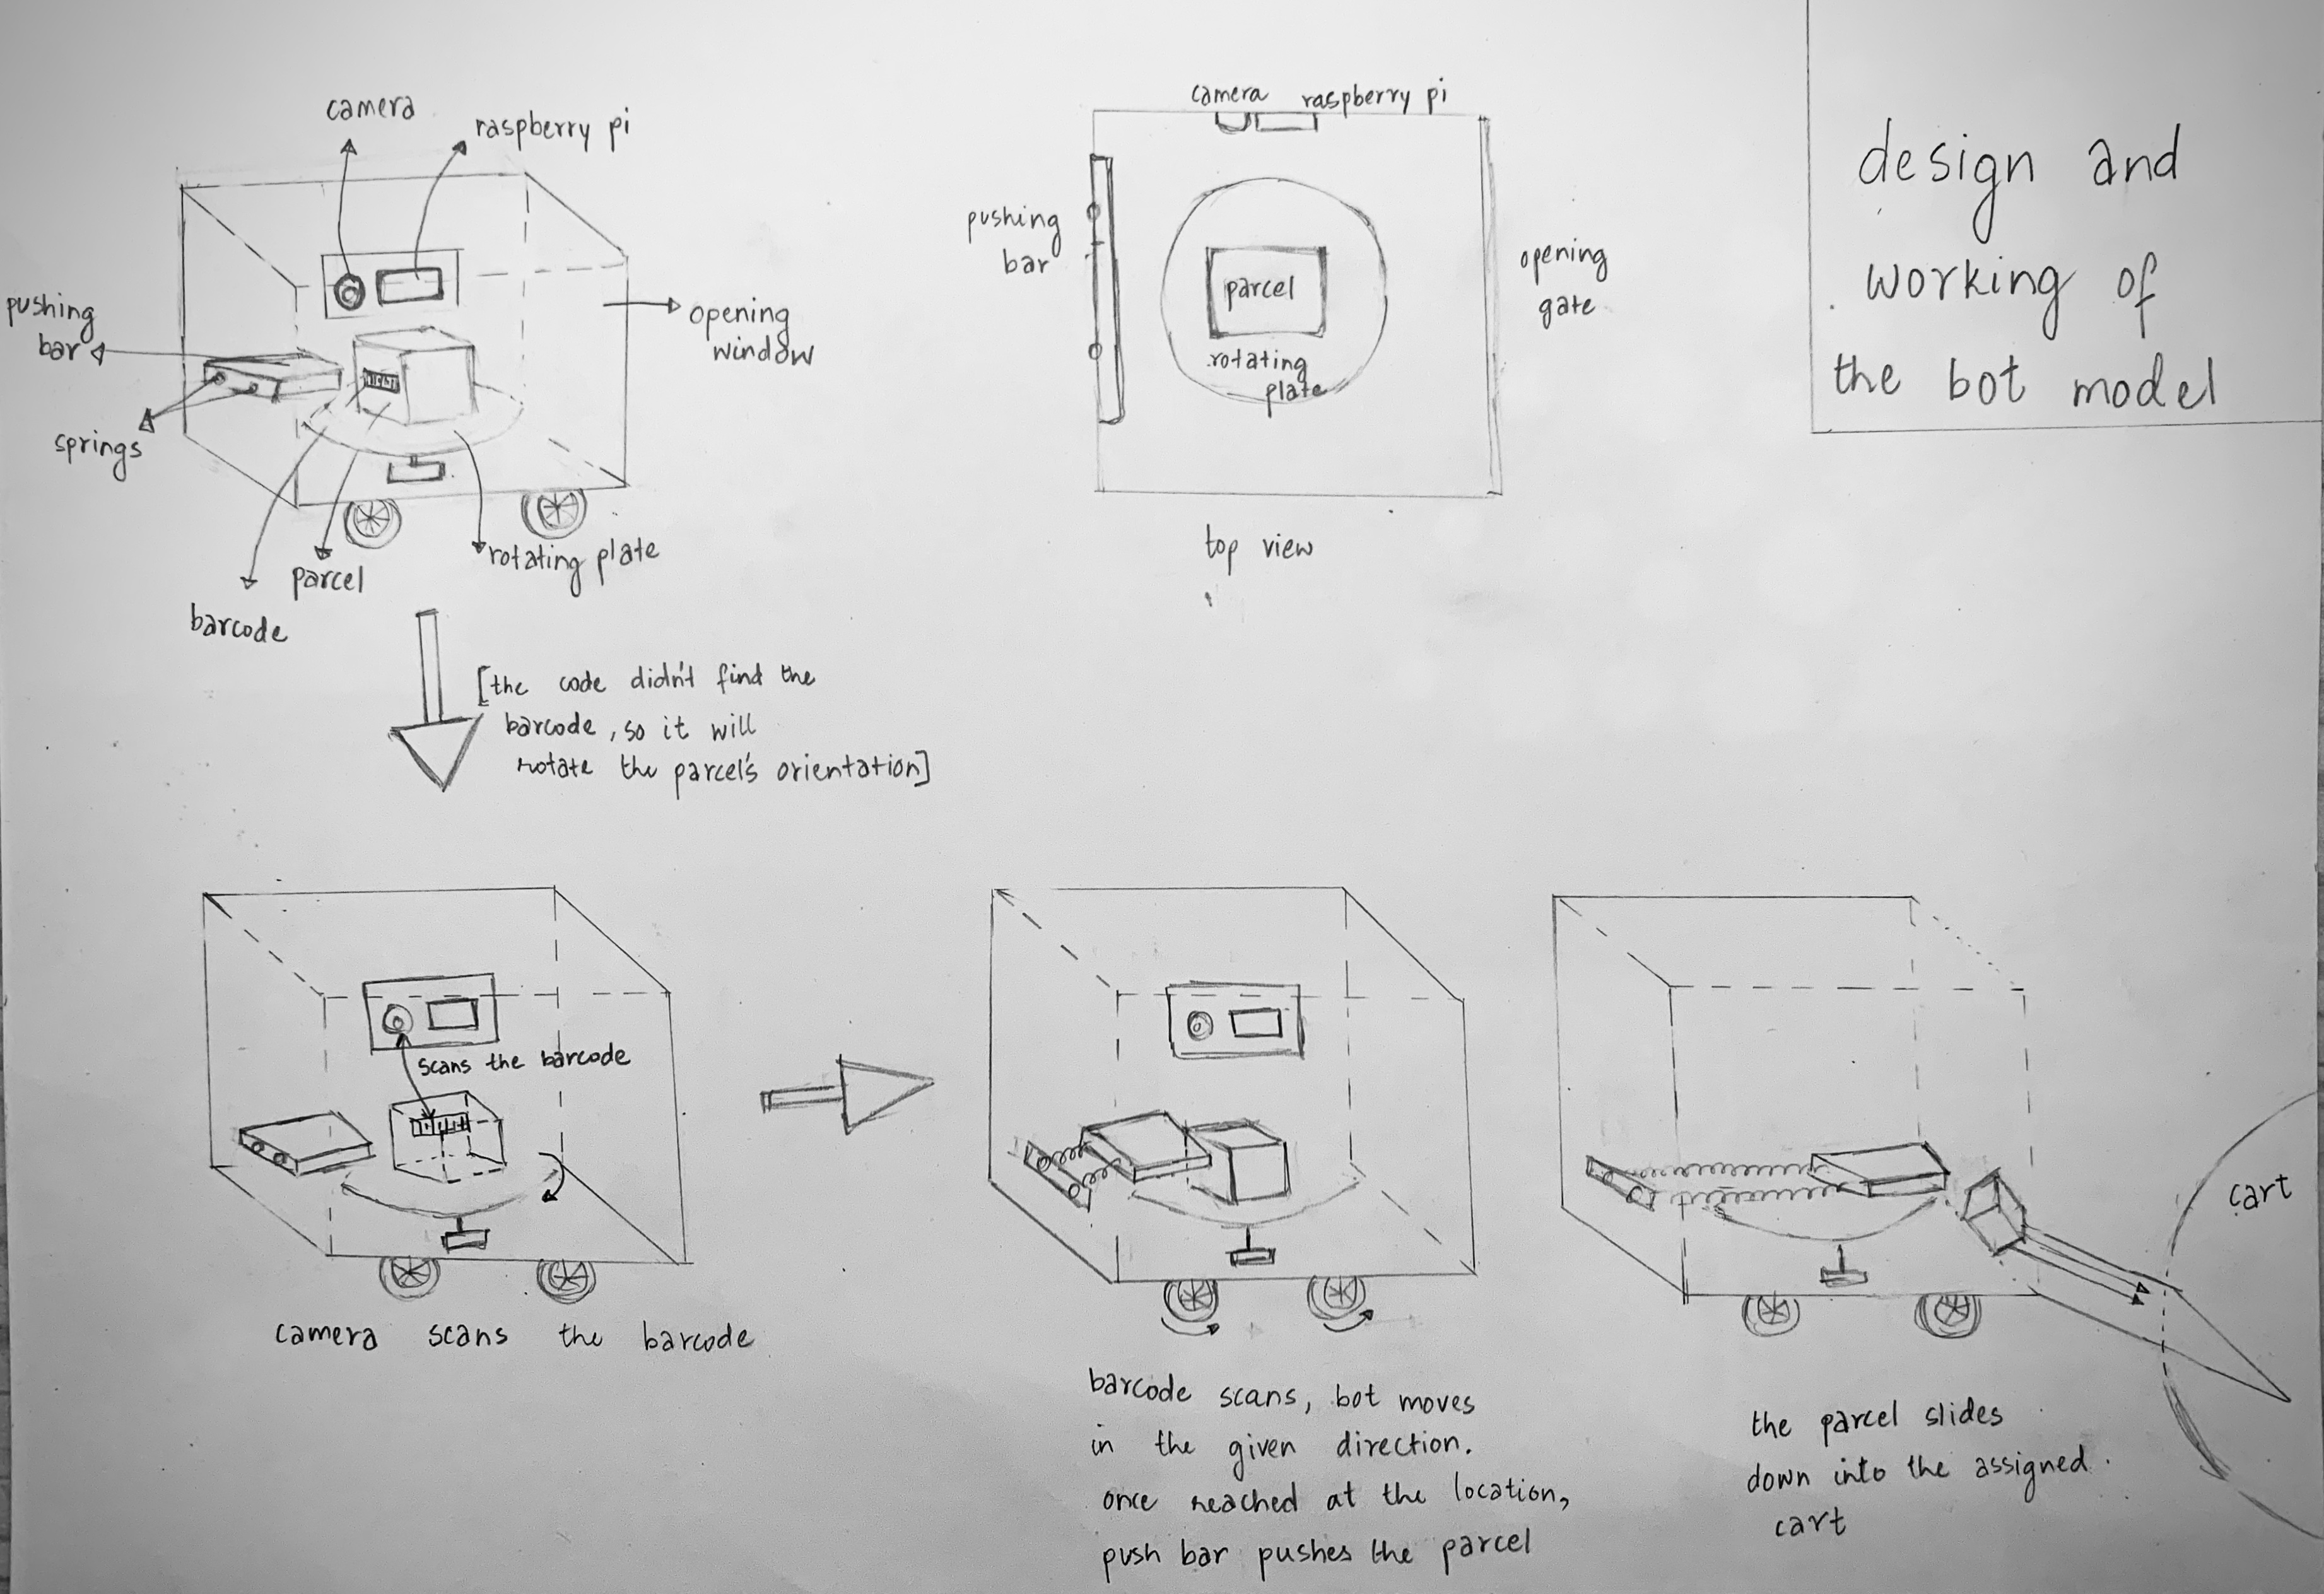 design and
working of
the bot model
camera
raspberry pi
pushing
bar
springs
opening
window
barcode
parcel
rotating plate
camera raspberry pi
pushing
bar
parcel
rotating
plate
opening
gate
top view
[the code didn't find the
barcode, so it will
rotate the parcel's orientation]
scans the barcode
camera scans the barcode
barcode scans, bot moves
in the given direction.
once reached at the location,
push bar pushes the parcel
cart
the parcel slides
down into the assigned
cart